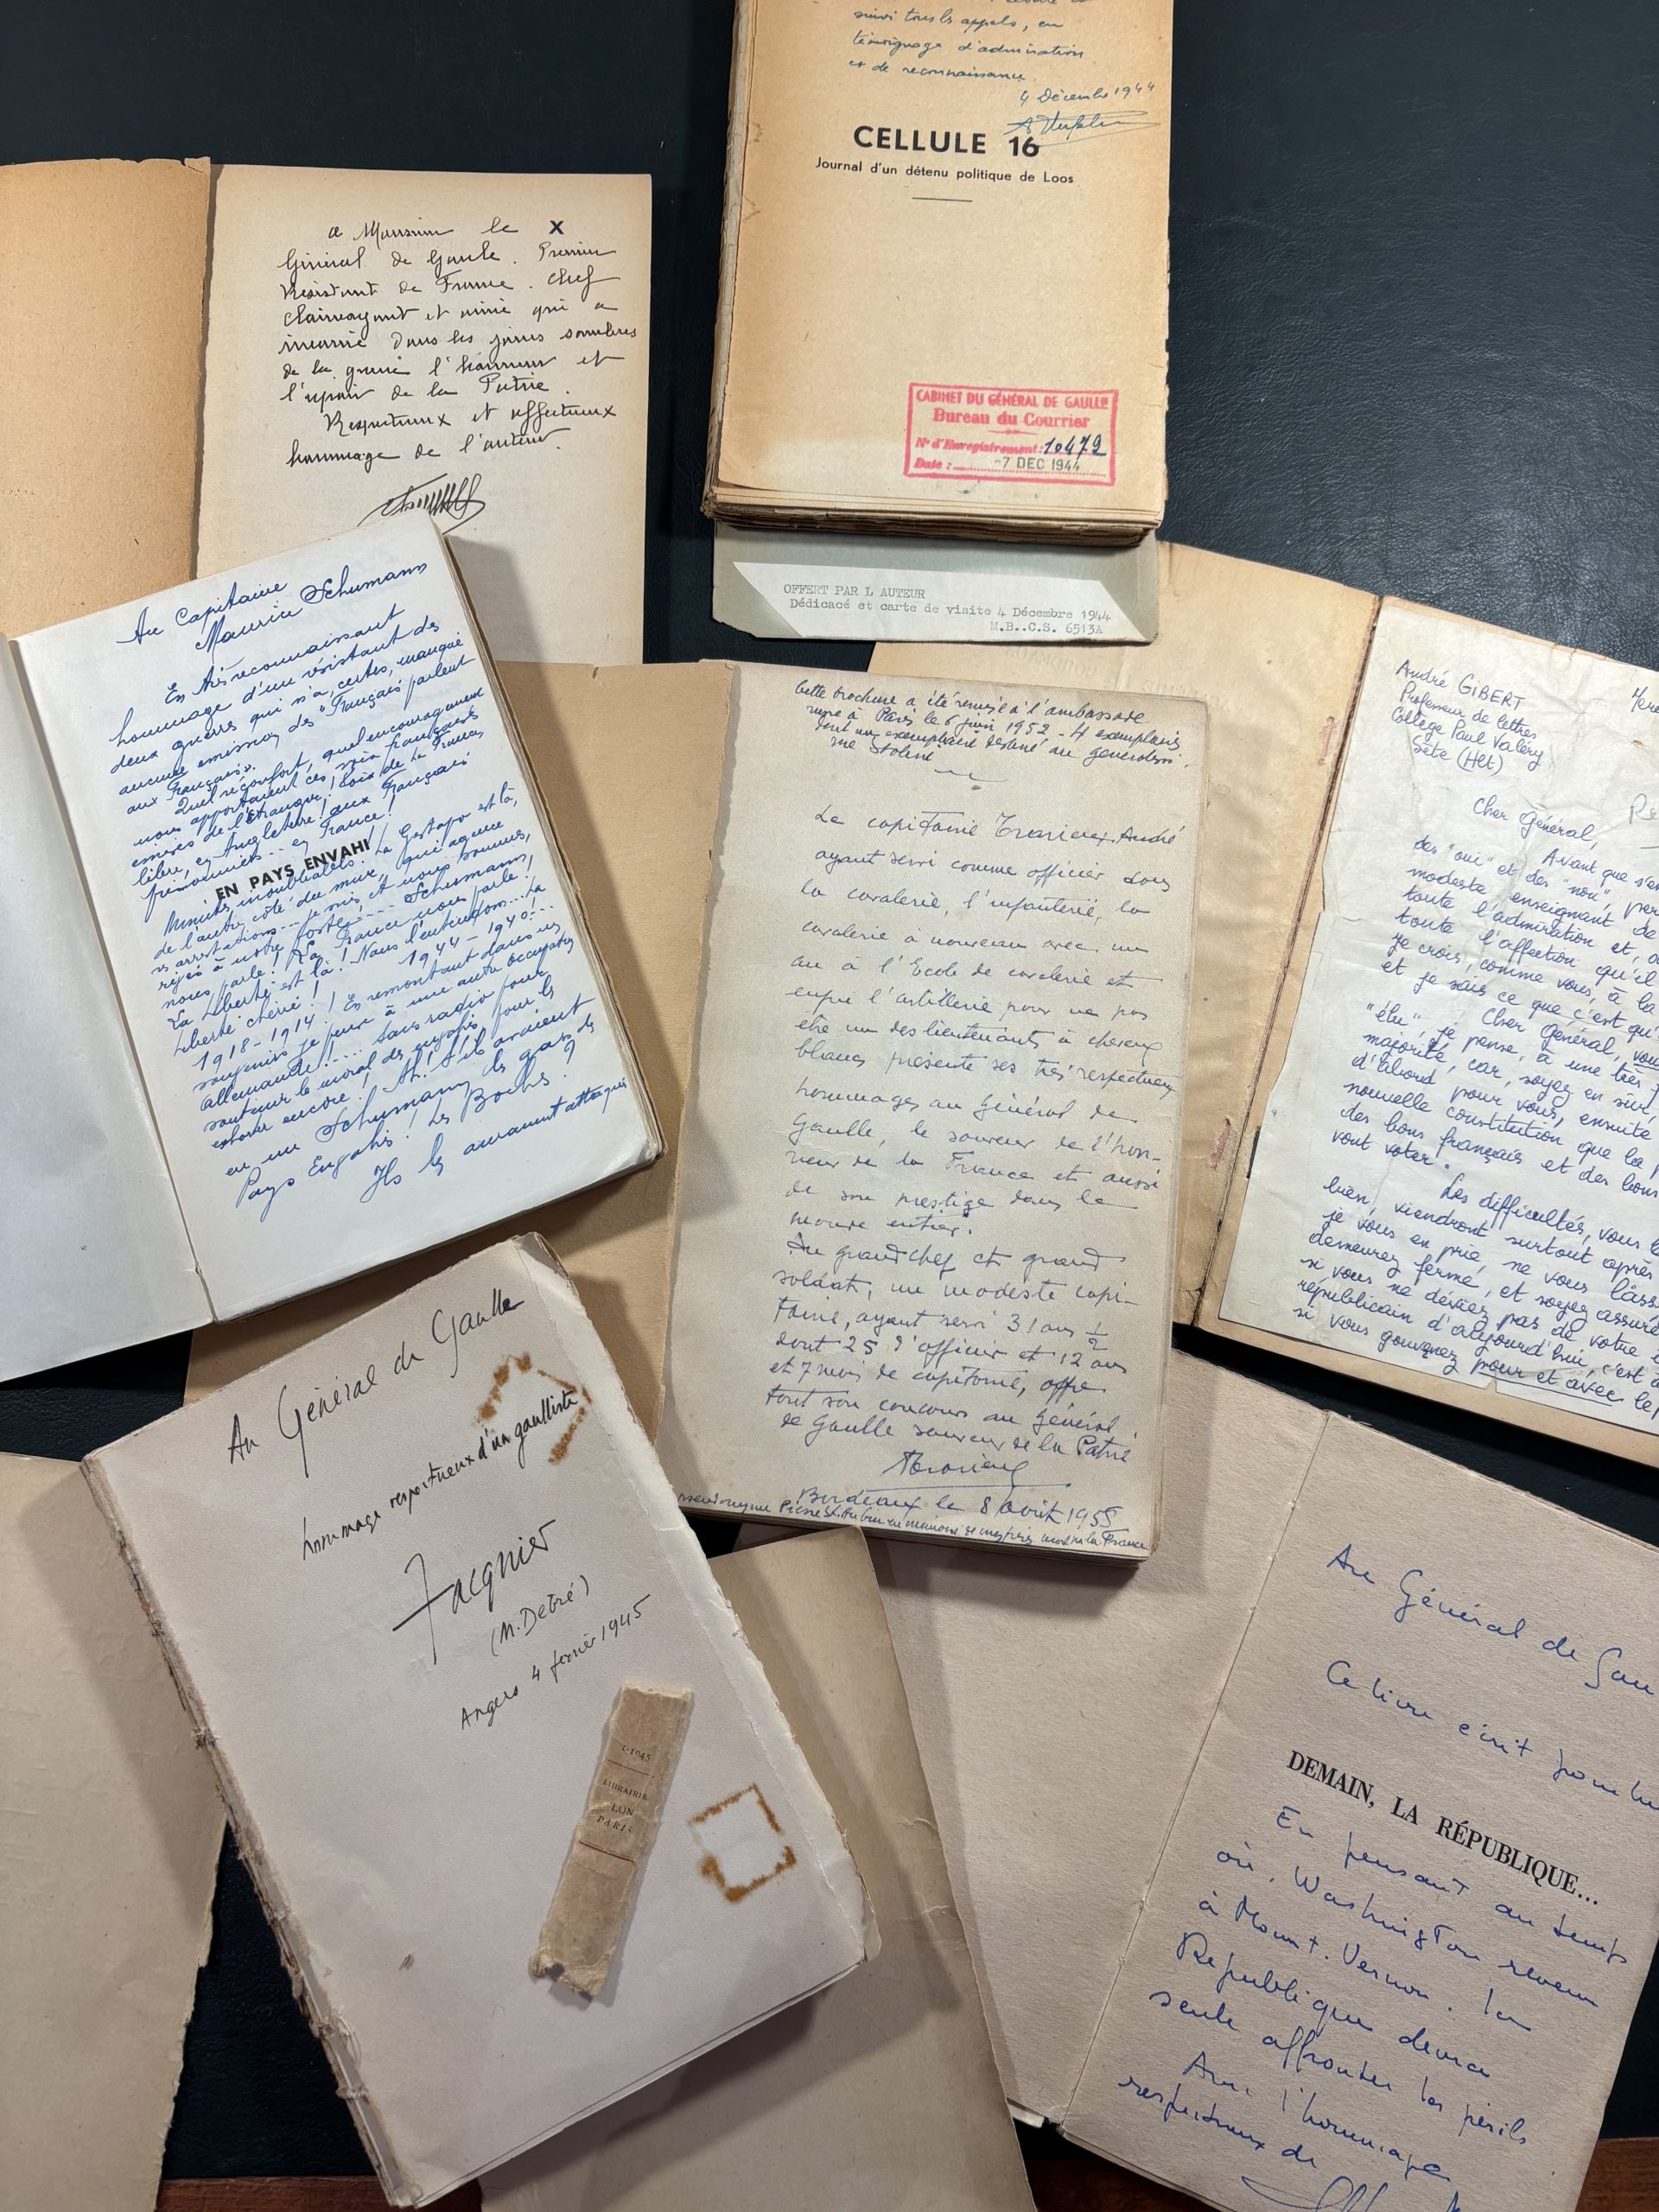 suivi tous les appels, en
témoignage d'admiration
et de reconnaissance.
4 Décembre 1944
CELLULE 16
Journal d'un détenu politique de Loos
CABINET DU GÉNÉRAL DE GAULLE
Bureau du Courrier
N° d'Enregistrement: 10472
Date : -7 DEC 1944
OFFERT PAR L AUTEUR
Dédicacé et carte de visite 4 Décembre 1944
M.B..C.S. 6513A
a Monsieur le X
Général de Gaulle. Premier
Résistant de France. Chef
clairvoyant et aimé qui a
incarné dans les jours sombres
de la guerre l'honneur et
l'espoir de la Patrie.
Respectueux et affectueux
hommage de l'auteur.
Au Capitaine
Maurice Schumann
En très reconnaissant
hommage d'un résistant des
deux guerres qui n'a, certes, manqué
aucune émission des "Français parlent
aux Français".
Quel réconfort, quel encouragement
nous apportaient ces voix françaises
émises de l'étranger! Voix de la France
libre, en Angleterre! aux Français
prisonniers... en France!
EN PAYS ENVAHI
Minutes inoubliables! La Gestapo est là,
de l'autre côté du mur, qui agence
ses arrestations... Et nous sommes,
rivés à notre poste!... Schumann
nous parle! La France nous parle!
La Liberté est là! Nous l'entendons... La
Liberté chérie! 1944-1940!...
1918-1914! En remontant dans mes
souvenirs je pense à une autre occupation
allemande!.... Sans radio pour
soutenir le moral des envahis, pour les
exhorter encore! Ah! S'ils avaient
eu un Schumann, les gars des
Pays Envahis! Les Boches?
Ils les auraient attaqués
Cette brochure a été remise à l'ambassade
russe à Paris le 6 juin 1952 - 4 exemplaires
dont un exemplaire destiné au généralissi-
me Staline
Le capitaine Trarieux André
ayant servi comme officier dans
la cavalerie, l'infanterie, la
cavalerie à nouveau avec un
an à l'Ecole de cavalerie et
enfin l'artillerie pour ne pas
être un des lieutenants à cheveux
blancs présente ses très respectueux
hommages au Général de
Gaulle, le sauveur de l'hon-
neur de la France et aussi
de son prestige dans le
monde entier.
Au grand chef et grand
soldat, un modeste capi-
taine, ayant servi 31 ans ½
dont 25 d'officier et 12 ans
et 7 mois de capitaine, offre
tout son concours au Général
de Gaulle sauveur de la Patrie
Trarieux
Bordeaux le 8 août 1955
André GIBERT
Professeur de lettres
Collège Paul Valéry
Sète (Hlt)
Cher Général,
Avant que s'en
des "oui" et des "non", per
modeste enseignant de
toute l'admiration et,
toute l'affection qu'il
je crois, comme vous, à la
et je sais ce que c'est qu'
Cher Général, vous
"élu", je pense, à une très
majorité, car, soyez en sûr,
d'abord pour vous, ensuite
nouvelle constitution que la
des bons français et des bons
vont voter.
Les difficultés, vous le
bien, viendront surtout après
je vous en prie, ne vous lass
demeurez ferme, et soyez assuré
si vous ne déviez pas de votre
républicain d'aujourd'hui, c'est à
si vous gouvernez pour et avec le
Au Général de Gaulle
hommage respectueux d'un gaulliste
Jacquier
(M. Debré)
Angers 4 février 1945
LIBRAIRIE
LON
PARIS
Au Général de Gau
Ce livre écrit pour lui
DEMAIN, LA RÉPUBLIQUE...
En pensant au temps
où, Washington revenu
à Mount-Vernon, la
République devra
seule affronter les périls
Avec l'hommage
respectueux de